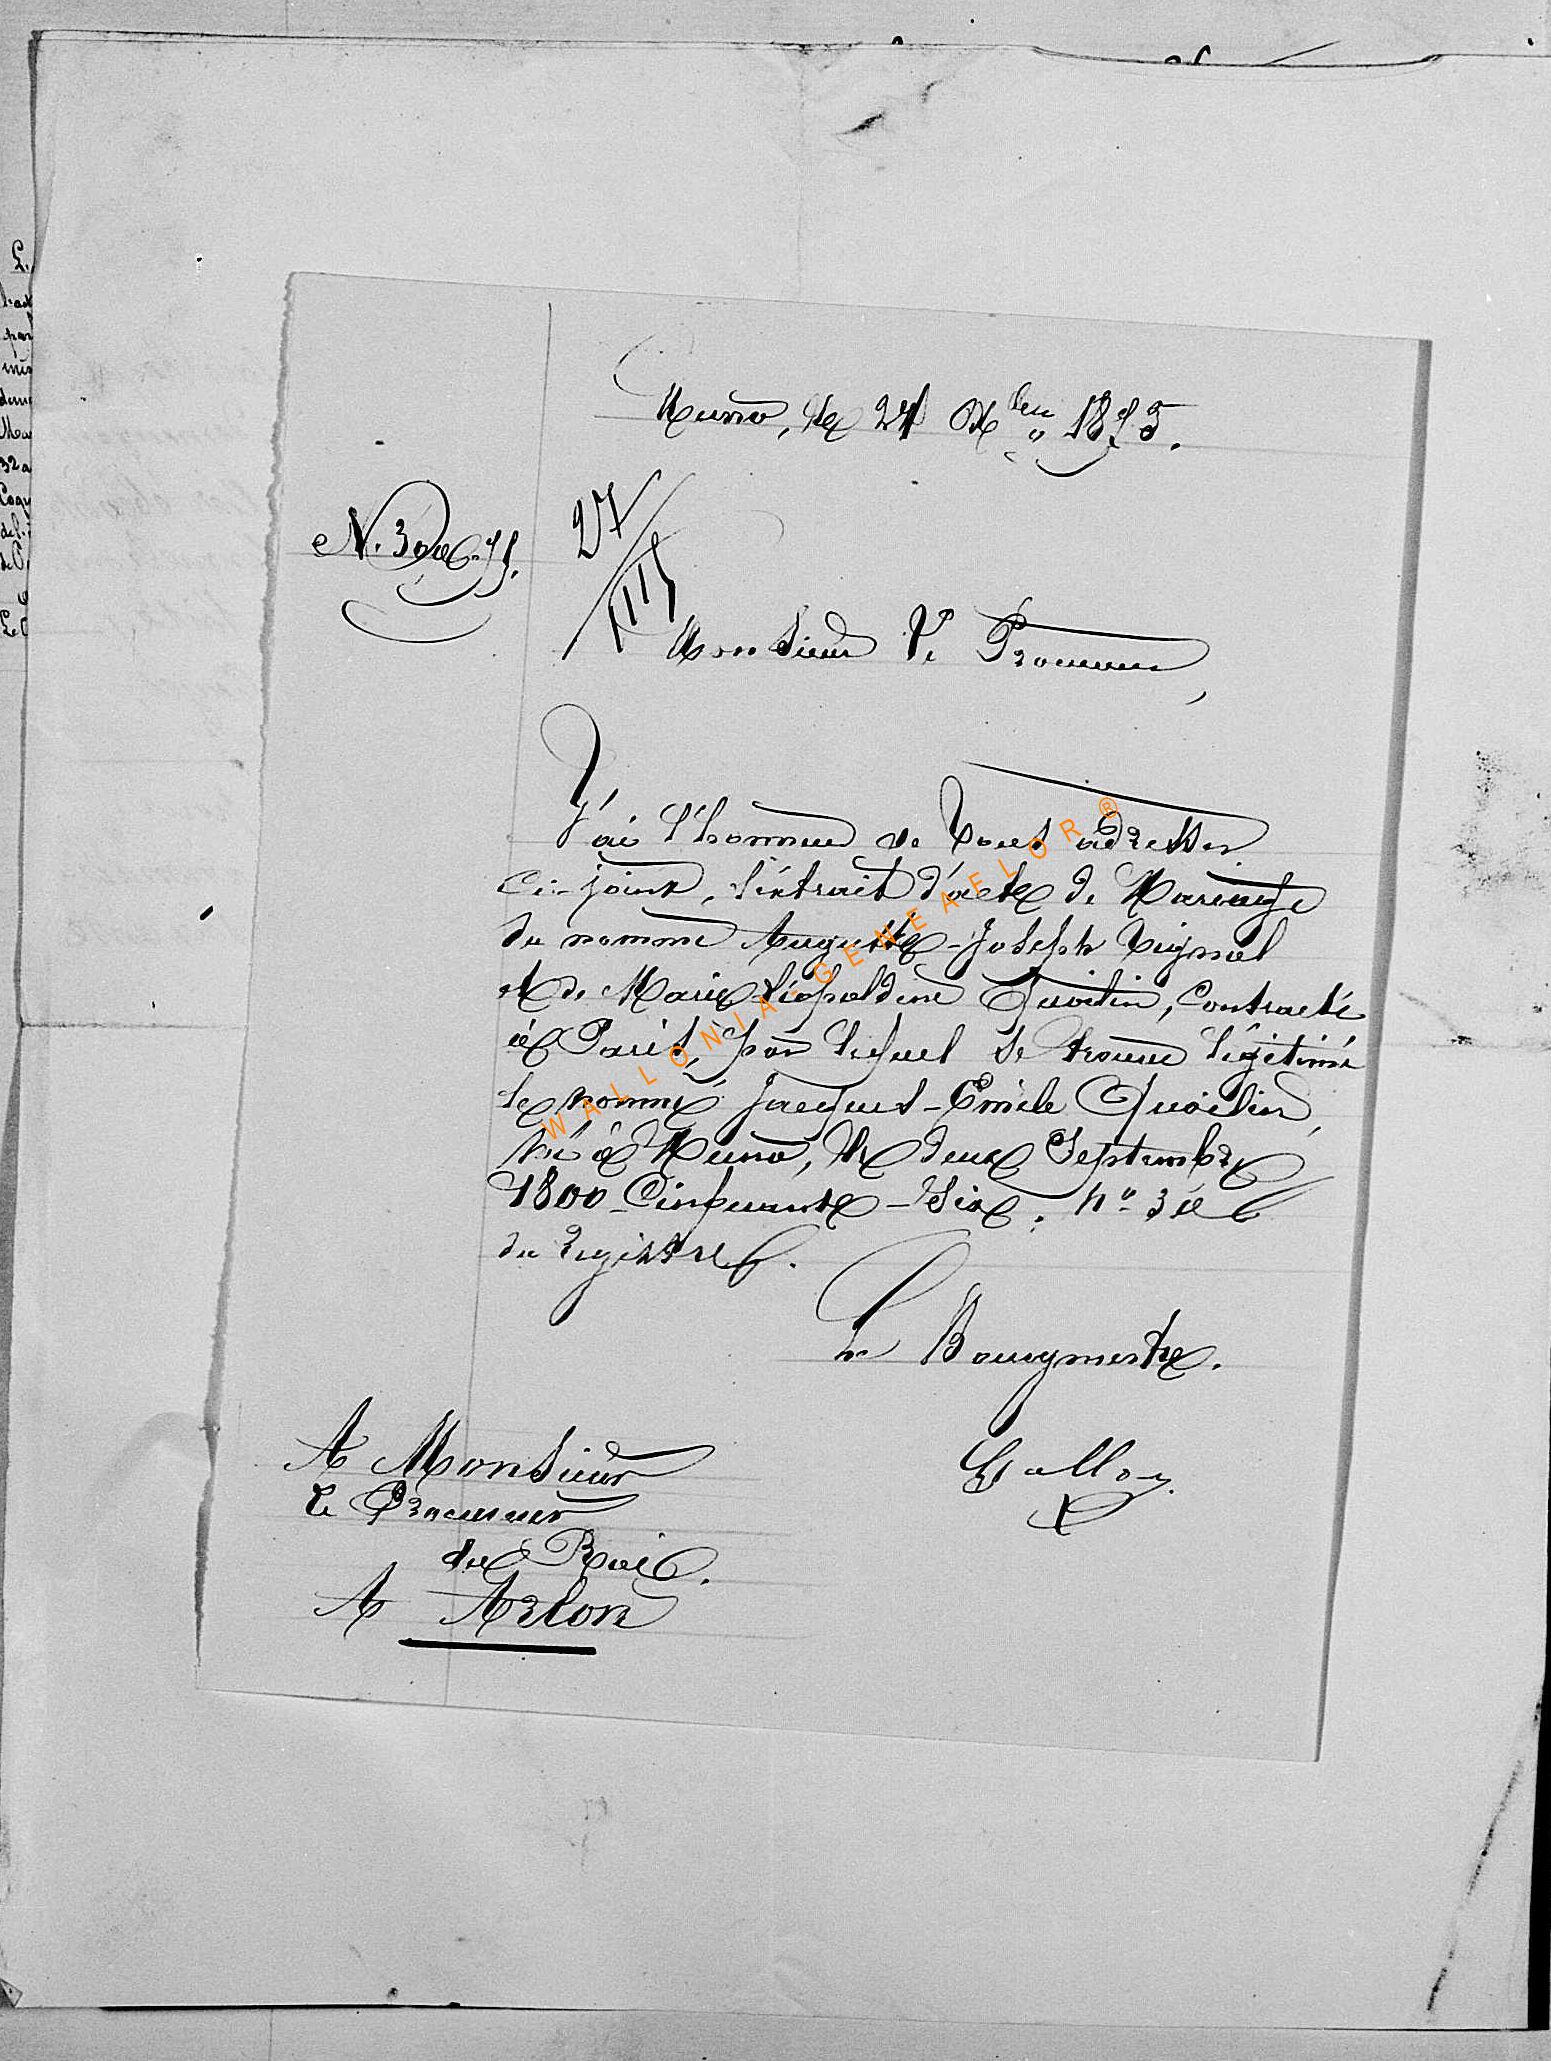 Muno, le 24 Xbre 1875.
27
Monsieur le Procureur,
J'ai l'honneur de vous adresser
Ci-joint, l'extrait d'acte de Mariage
du nommé Auguste-Joseph
et de Marie Léopoldine Quoilin, Contracté
à Paris, par lequel se trouve légitimé
le nommé Jacques-Emile Quoilin,
né à Muno, le deux Septembre
1800 Cinquante-Six, n°
du registre.
Le Bourgmestre.
A Monsieur
le Procureur
du Roi.
A Arlon
WALLONIA-GENEAELOR®